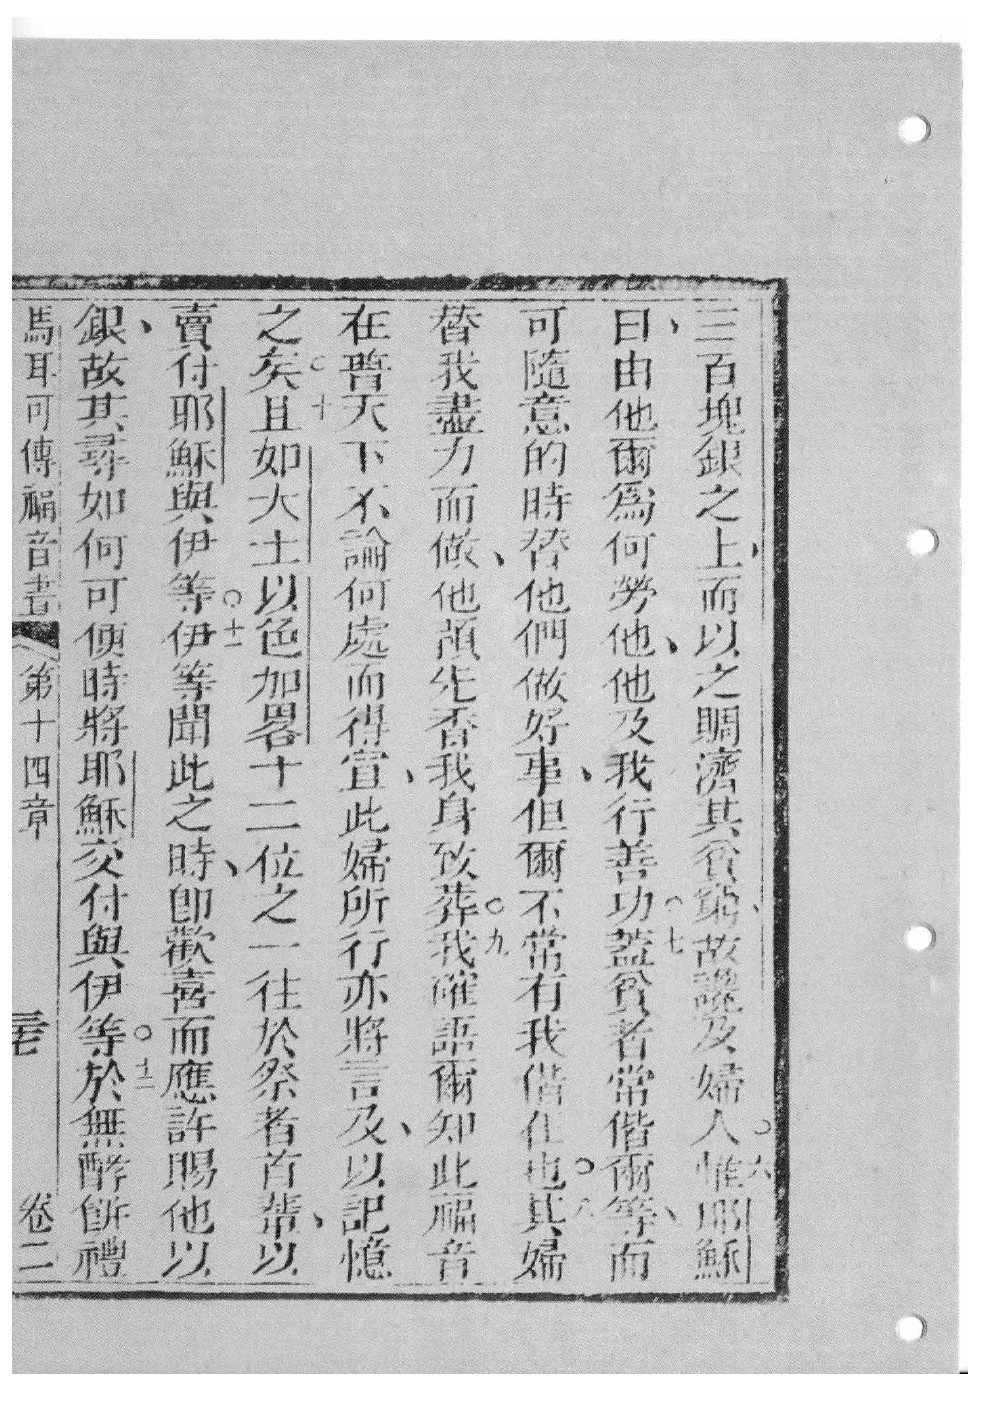 三百塊銀之上、而以之賙濟其貧窮、故讒及婦人○六惟耶穌
曰、由他爾爲何勞他、他及我行善功○七蓋貧者常偕爾等、而
可隨意的時替他們做好事、但爾不常有我偕在也○八其婦
替我盡力而做、他預先香我身致葬○九我確語爾知此福音
在普天下不論何處而得宣、此婦所行亦將言及、以記憶
之矣○十且如大士以色加畧十二位之一往於祭者首輩、以
賣付耶穌與伊等○十一伊等聞此之時、卽歡喜而應許賜他以
銀、故其尋如何可便時將耶穌交付與伊等○十二於無酵餅禮
馬耳可傳福音書 第十四章 卷二